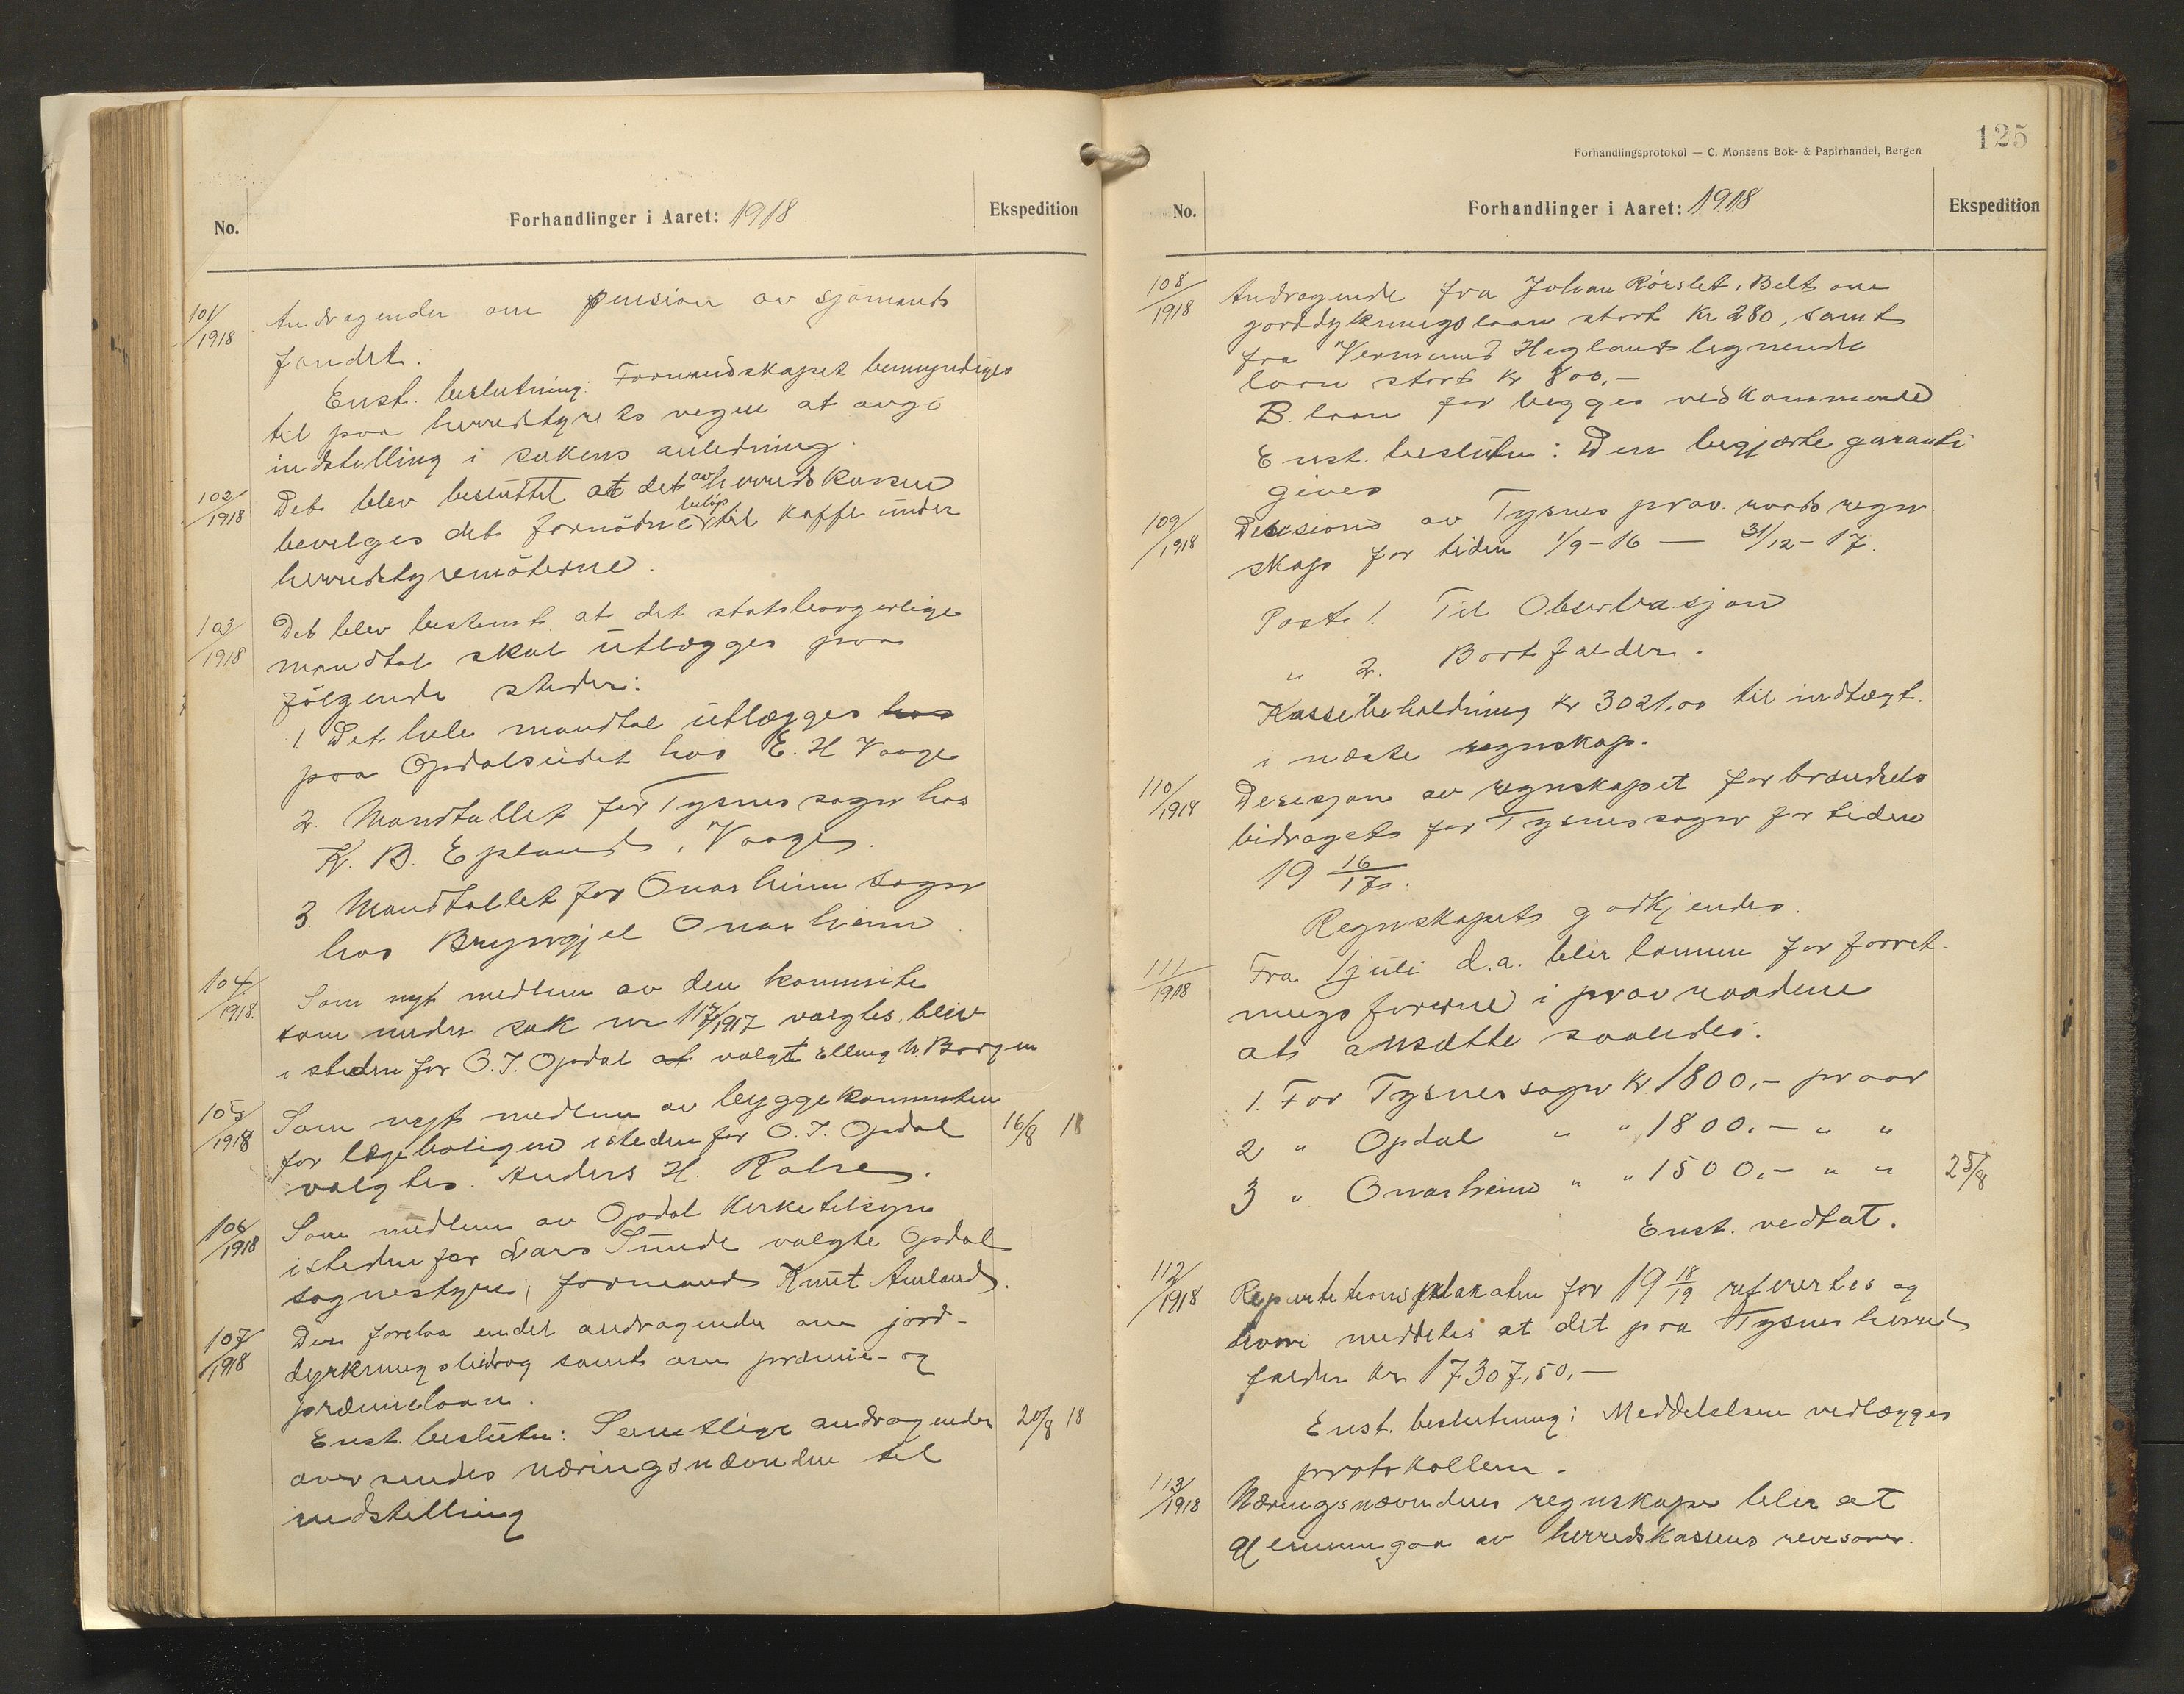 No.
Forhandlinger i Aaret: 1918
Ekspedition
101/1918
Andragender om pension av sjømands
fondet.
Enst. beslutning: Formandskapet bemyndiges
til paa herredstyrets vegne at avgi
indstilling i sakens anledning.
102/1918
Det blev besluttet at det av herredskassen
bevilges det fornødne beløp til kaffe under
herredstyremøterne.
103/1918
Det blev bestemt at det statsborgerlige
mandtal skal utlægges paa
følgende steder:
1 Det hele mandtal utlægges hos
paa Opdalseidet hos E. H Vaage
2. Mandtallet for Tysnes sogn hos
K. B. Epland, Vaage.
3. Mandtallet for Onarheim sogn
hos Brynjel Onarheim
104/1918.
Som nyt medlem av den komite
som under sak nr 117/1917 valgtes, blev
i steden for O. J. Opdal at valgt Elling N. Borgen
105/1918
Som nyt medlem av byggekomiteen
for lægeboligen isteden for O. J. Opdal
16/8 18
valgtes Anders H. Ralse.
106/1918
Som medlem av Opdal Kirketilsyn
isteden for Lars Sunde valgte Opdal
sognestyre; formand Knut Amland.
107/1918
Der forelaa endel andragender om jord-
dyrkningsbidrag samt om præmie- og
præmielaan.
Enst. beslutn: Samtlige andragender
20/8 18
oversendes næringsnævnden til
indstilling
125
Forhandlingsprotokol — C. Monsens Bok- & Papirhandel, Bergen
No.
Forhandlinger i Aaret: 1918
Ekspedition
108/1918
Andragende fra Johan Rørslet, Belt om
jorddykningslaan stort Kr 280, samt
fra Vermund Hegland lignende
laan stort kr 800,-
B. laan for begges vedkommende
Enst. beslutn: Den begjærte garanti
gives
109/1918
Desisions av Tysnes prov. raads regn
skap for tiden 1/9-16 — 31/12-17.
Post 1. Til Observasjon
" 2. Bortfalder.
Kassebeholdning kr 3021,00 til indtægt.
i næste regnskap.
110/1918
Desisjon av regnskapet for brændsels
bidraget for Tysnes sogn for tiden
19 16/17.
Regnskapet godkjendes.
111/1918
Fra 1 juli d.a. blir lønnen for forret-
nings forerne i provraadene
at ansætte saaledes:
1. For Tysnes sogn kr 1800,- pr aar
2 " Opdal " " 1800.- " "
3 " Onarheim " " 1500,- " "
25/8
Enst. vedtat.
112/1918
Repartitionsplakaten for 19 18/19 refererles og
hvori meddeles at det paa Tysnes herred
falder kr 17307,50,-
Enst. beslutning: Meddelelsen vedlægges
protokollen.
113/1918
Næringsnævndens regnskaper blir at
gjennemgaa av herredskassens revisorer.